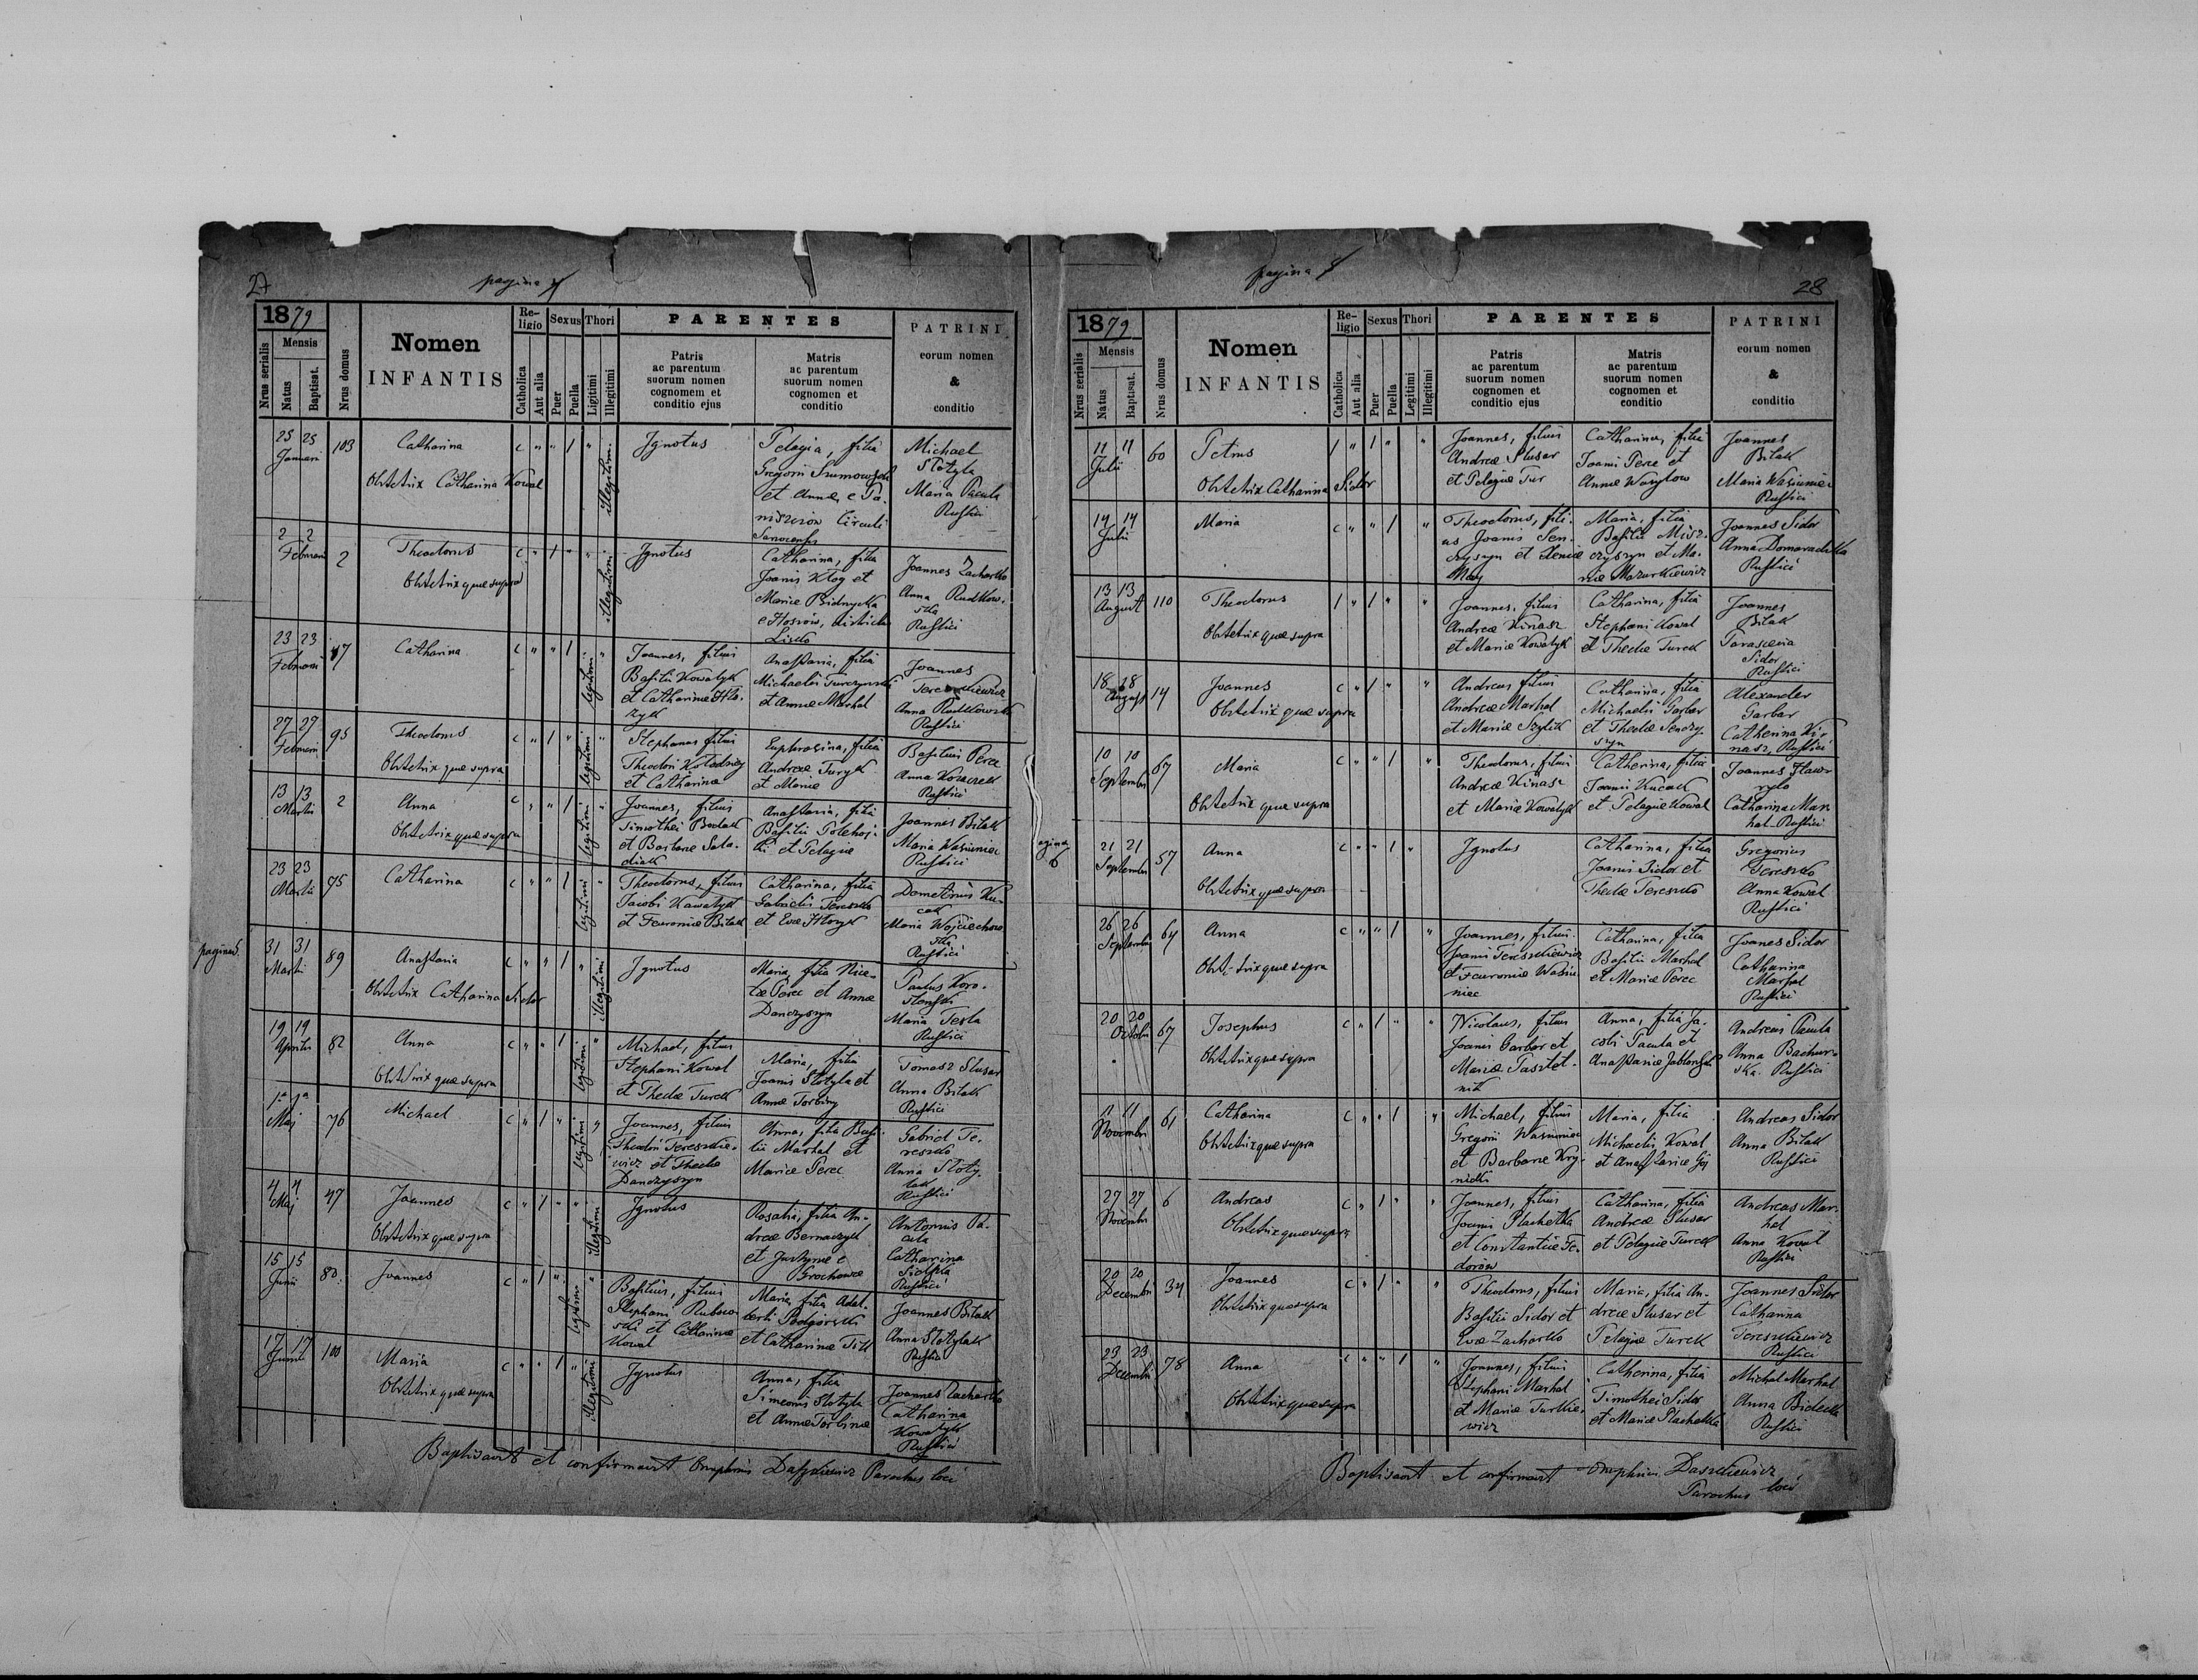 27
pagina
1879
Nrus serialis
Mensis
Natus
Baptisat.
Nrus domus
Nomen
INFANTIS
Re-
ligio
Catholica
Aut alia
Sexus
Puer
Puella
Thori
Ligitimi
Illegitimi
PARENTES
Patris
ac parentum
suorum nomen
cognomem et
conditio ejus
Matris
ac parentum
suorum nomen
cognomen et
conditio
PATRINI
eorum nomen
&
conditio
25 25
Januari
103
Catharina
Obstetrix Catharina Kowal
illegitimi
Ignotus
Pelagia, filia
Gregorii
et Annæ e Pa-
Circuli
Michael
Slotyla
Maria Pacula
Rustici
2 2
Februari
2
Theodorus
Obstetrix quæ supra
illegitimi
Ignotus
Catharina, filia
Joanis Klog et
Mariæ Bidnycka
Lisko
Joannes Zacharko
Anna Rudkow-
ska
Rustici
23 23
Februari
47
Catharina
legitimi
Joannes, filius
Basilii Kowalyk
et Catharinæ
Anastasia, filia
Michaelis Turczynski
et Annæ Marhal
Joannes
Anna Rudkowska
Rustici
27 27
Februari
95
Theodorus
Obstetrix quæ supra
legitimi
Stephanus filius
Theodori
et Catharinæ
Euphrosina, filia
Andreæ Turyk
et Mariæ
Basilius Perec
Anna
Rustici
13 13
Martii
2
Anna
Obstetrix quæ supra
legitimi
Joannes, filius
Timothei Bodak
et Barbaræ Sala-
diak
Anastasia, filia
Basilii
et Pelagiæ
Joannes Bilak
Maria Wasiuniec
Rustici
23 23
Martii
95
Catharina
legitimi
Theodorus, filius
Jacobi Kowalyk
et Febroniæ Bilak
Catharina, filia
Gabrielis Tereszko
et Evæ
Demetrius Ku-
cak
Maria Wojciechow-
ska
Rustici
31 31
Martii
89
Anastasia
Obstetrix Catharina Sidor
illegitimi
Ignotus
Maria, filia Nice-
tæ Perec et Annæ
Danczyszyn
Paulus Koro-
Maria Testa
Rustici
19 19
Aprilis
82
Anna
Obstetrix quæ supra
legitimi
Michael, filius
Stephani Kowal
et Theclæ Turek
Maria, filia
Joanis Slotyla et
Annæ Torbiny
Tomasz Slusar
Anna Bilak
Rustici
1a 1a
Maj
76
Michael
legitimi
Joannes, filius
Theodori Tereszkie-
wicz et Theclæ
Danczyszyn
Anna, filia Basi-
lii Marhal et
Mariæ Perec
Gabriel Te-
reszko
Anna Sloty-
lak
Rustici
4 4
Maj
47
Joannes
Obstetrix quæ supra
illegitimi
Ignotus
Rosalia, filia An-
dreæ Bernaczyk
et Justynæ e
Grochowce
Antonius Pa-
cula
Catharina
Rustici
15 15
Junii
82
Joannes
legitimi
Basilius, filius
Stephani
et Catharinæ
Kowal
Maria, filia Adal-
berti Podgórski
et Catharinæ
Joannes Bilak
Anna Slotylak
Rustici
17 17
Junii
100
Maria
Obstetrix quæ supra
illegitimi
Ignotus
Anna, filia
Simeonis Slotyla
et Annæ Torbinæ
Joannes Zacharko
Catharina
Kowalyk
Rustici
Baptisavit et confirmavit Onuphrius Daszkiewicz Parochus loci
pagina 8
28
1879
Nrus serialis
Mensis
Natus
Baptisat.
Nrus domus
Nomen
INFANTIS
Re-
ligio
Catholica
Aut alia
Sexus
Puer
Puella
Thori
Legitimi
Illegitimi
PARENTES
Patris
ac parentum
suorum nomen
cognomen et
conditio ejus
Matris
ac parentum
suorum nomen
cognomen et
conditio
PATRINI
eorum nomen
&
conditio
11 11
Julii
60
Petrus
Obstetrix Catharina Sidor
Joannes, filius
Andreæ Slusar
et Pelagiæ Tur
Catharina, filia
Joanis Perec et
Annæ Worytow
Joannes
Bilak
Maria Wasiuniec
Rustici
14 14
Julii
Maria
Theodorus, fili-
us Joanis Sen-
czyszyn et Xeniæ
Maria, filia
Basilii Misz-
czyszyn et Ma-
riæ Mazurkiewicz
Joannes Sidor
Anna Domaradzka
Rustici
13 13
August
110
Theodorus
Obstetrix quæ supra
Joannes, filius
Andreæ Kinasz
et Mariæ Kowalyk
Catharina, filia
Stephani Kowal
et Theclæ Turek
Joannes
Bilak
Parascevia
Sidor
Rustici
18 18
August
14
Joannes
Obstetrix quæ supra
Andreas filius
Andreæ Marhal
et Mariæ Szylik
Catharina, filia
Michaelis Garbar
et Theclæ Senczy-
szyn
Alexander
Garbar
Catharina Ki-
nasz, Rustici
10 10
Septembr
67
Maria
Obstetrix quæ supra
Theodorus, filius
Andreæ Kinasz
et Mariæ Kowalyk
Catharina, filia
Joanis Kucak
et Pelagiæ Kowal
Joannes Hawr
ryło
Catharina Mar-
hal Rustici
21 21
Septembr
57
Anna
Obstetrix quæ supra
Ignotus
Catharina, filia
Joanis Sidor et
Theclæ Tereszko
Gregorius
Tereszko
Anna Kowal
Rustici
26 26
Septembr
64
Anna
Obstetrix quæ supra
Joannes, filius
Joanis Tereszkiewicz
et Febroniæ Wasiu-
niec
Catharina, filia
Basilii Marhal
et Mariæ Perec
Joanes Sidor
Catharina
Marhal
Rustici
20 20
Octobr
67
Josephus
Obstetrix quæ supra
Nicolaus, filius
Joanis Garbar et
Mariæ Pasztet-
nik
Anna, filia Ja-
cobi Pacula et
Anastasiæ Jablonska
Andreas Pacula
Anna Bachur-
ska. Rustici
11 11
Novembr
61
Catharina
Obstetrix quæ supra
Michael, filius
Gregorii Wasiuniec
et Barbaræ Kry-
nicki
Maria, filia
Michaelis Kowal
et Anastasiæ Goj
Andreas Sidor
Anna Bilak
Rustici
27 27
Novembr
6
Andreas
Obstetrix quæ supra
Joannes, filius
Joanis Plachetka
et Constantiæ Fe-
dorow
Catharina, filia
Andreæ Slusar
et Pelagiæ Turek
Andreas Mar-
hal
Anna Kowal
Rustici
20 20
Decembr
34
Joannes
Obstetrix quæ supra
Theodorus, filius
Basilii Sidor et
Evæ Zacharko
Maria, filia An-
dreæ Slusar et
Pelagiæ Turek
Joannes Sidor
Catharina
Tereszkiewicz
Rustici
23 23
Decembr
78
Anna
Obstetrix quæ supra
Joannes, filius
Stephani Marhal
et Mariæ Turkie-
wicz
Catharina, filia
Timothei Sidor
et Mariæ Plachetka
Michal Marhal
Anna Bidecka
Rustici
Baptisavit et confirmavit Onuphrius Daszkiewicz
Parochus loci